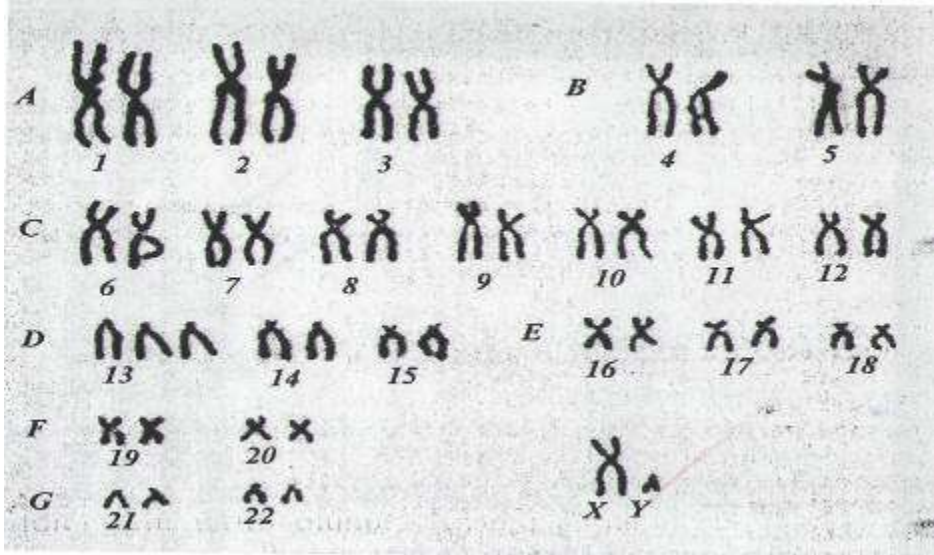 A B
1 2 3 4 5
C
6 7 8 9 10 11 12
D E
13 14 15 16 17 18
F
19 20
G
21 22 X Y